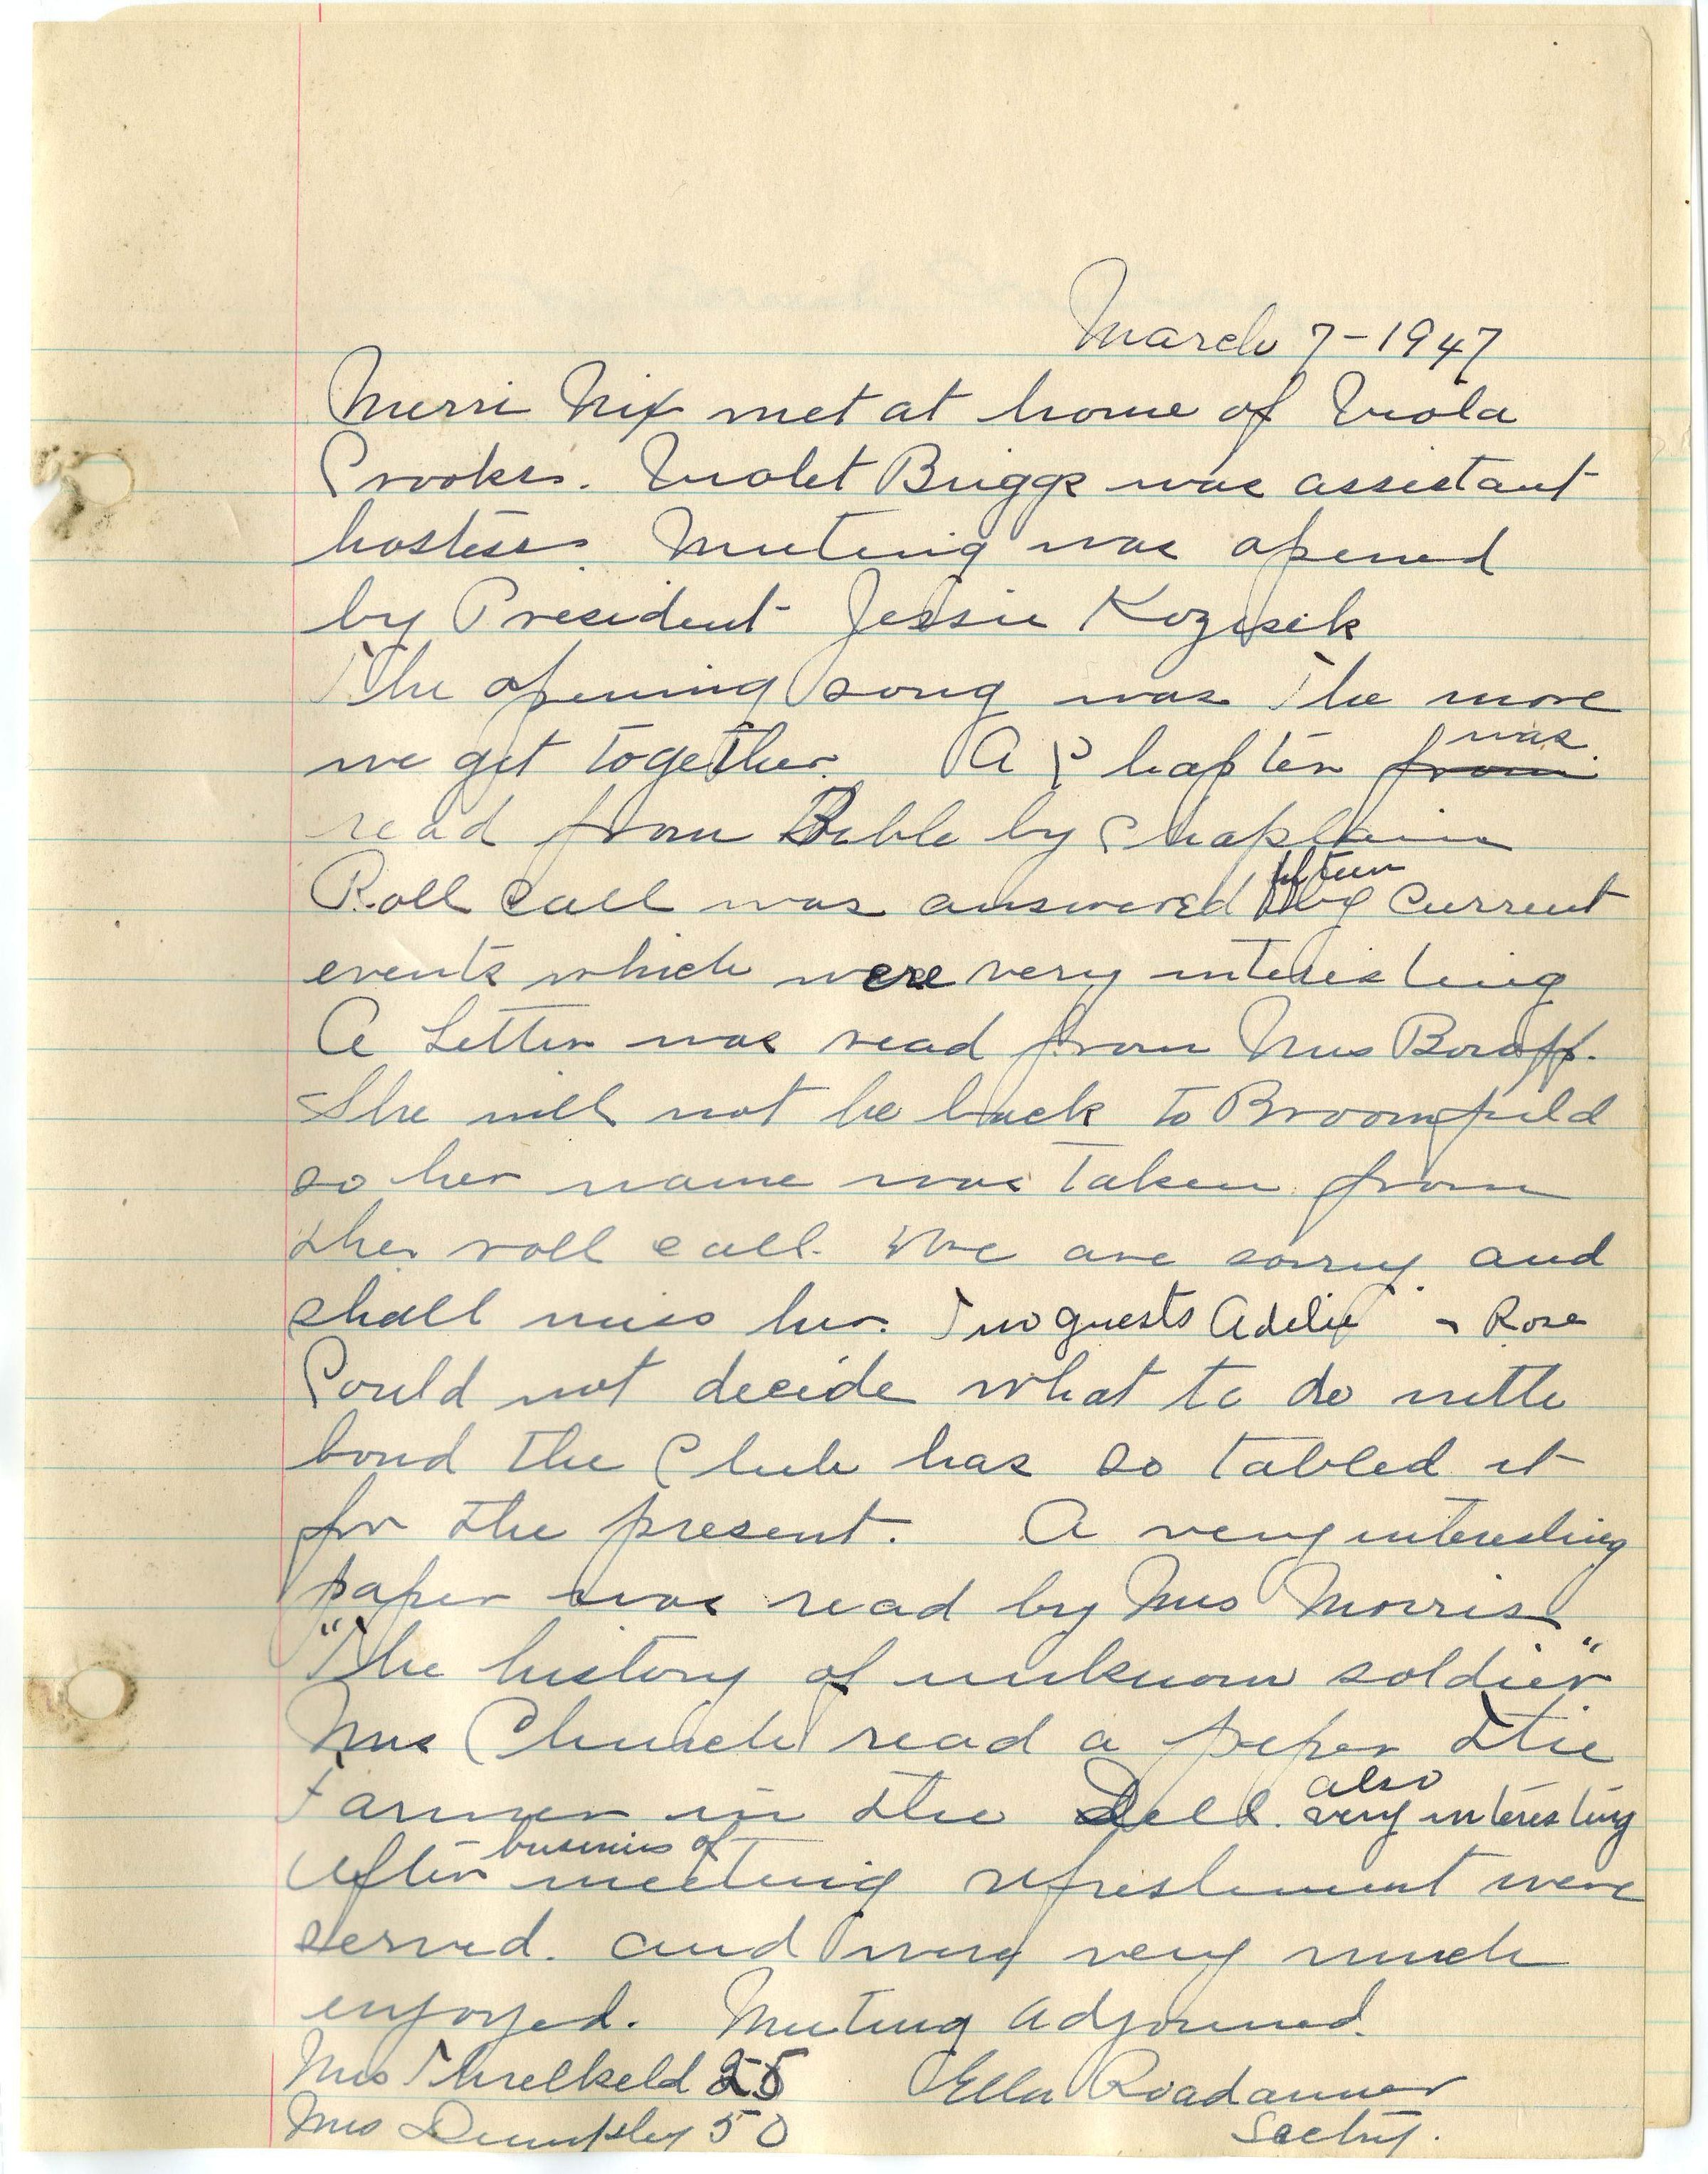 March 7-1947
Merri Mix met at home of Viola
Crooks. Violet Briggs was assistant
hostess. Meeting was opened
by President Jessie Kozisek
The opening song was The more
we get together. A Chapter from was
read from Bible by Chaplain
Roll call was answered fifteen by current
events which were very interesting
A Letter was read from Mrs Boroff.
She will not be back to Broomfield
so her name was taken from
the roll call. We are sorry and
shall miss her. Two guests Adelie & Rose
Could not decide what to do with
bond the Club has so tabled it
for the present. A very interesting
paper was read by Mrs Morris
"The history of unknown soldier"
Mrs Church read a paper The
Farmer in the Dell. also very interesting
After business of meeting refreshment were
served. and very much
enjoyed. Meeting adjourned.
Mrs Threlkeld 25 Ella Roadarmer
Mrs Dumpsley 50 Secty.